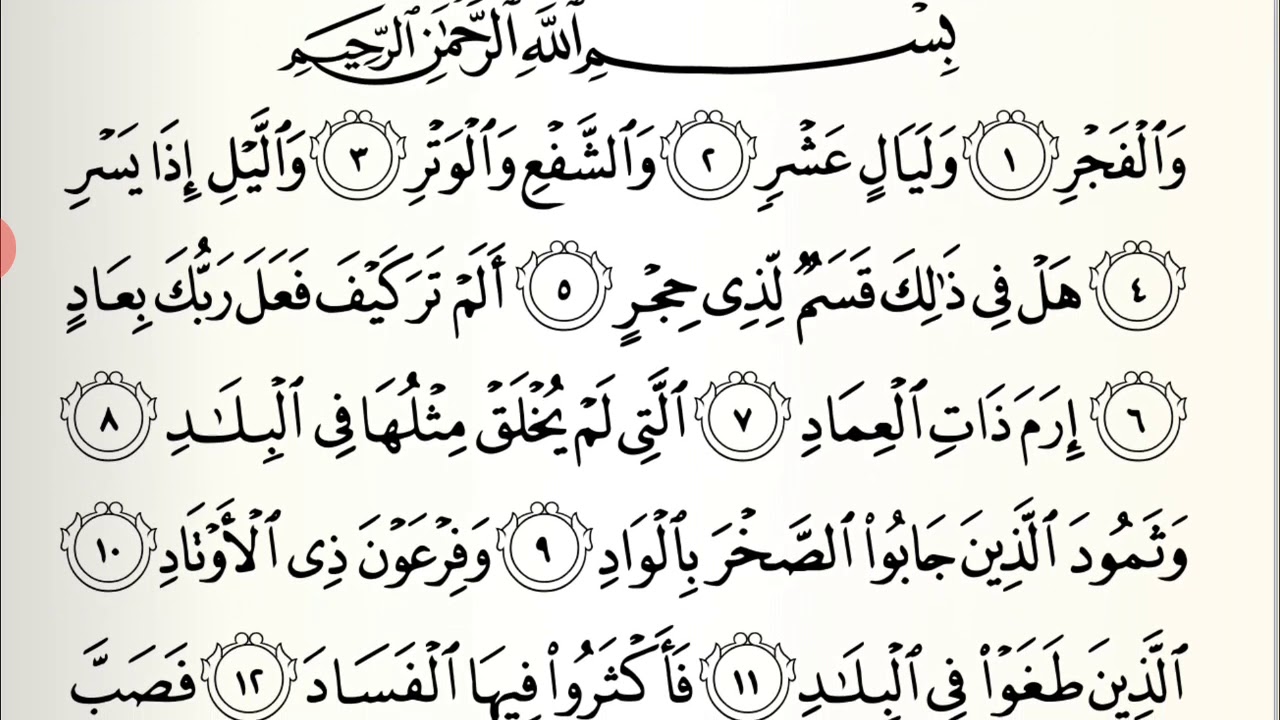 بِسْمِ ٱللَّهِ ٱلرَّحْمَٰنِ ٱلرَّحِيمِ
وَٱلْفَجْرِ ١ وَلَيَالٍ عَشْرٍ ٢ وَٱلشَّفْعِ وَٱلْوَتْرِ ٣ وَٱلَّيْلِ إِذَا يَسْرِ
٤ هَلْ فِى ذَٰلِكَ قَسَمٌ لِّذِى حِجْرٍ ٥ أَلَمْ تَرَ كَيْفَ فَعَلَ رَبُّكَ بِعَادٍ
٦ إِرَمَ ذَاتِ ٱلْعِمَادِ ٧ ٱلَّتِى لَمْ يُخْلَقْ مِثْلُهَا فِى ٱلْبِلَٰدِ ٨
وَثَمُودَ ٱلَّذِينَ جَابُوا۟ ٱلصَّخْرَ بِٱلْوَادِ ٩ وَفِرْعَوْنَ ذِى ٱلْأَوْتَادِ ١٠
ٱلَّذِينَ طَغَوْا۟ فِى ٱلْبِلَٰدِ ١١ فَأَكْثَرُوا۟ فِيهَا ٱلْفَسَادَ ١٢ فَصَبَّ